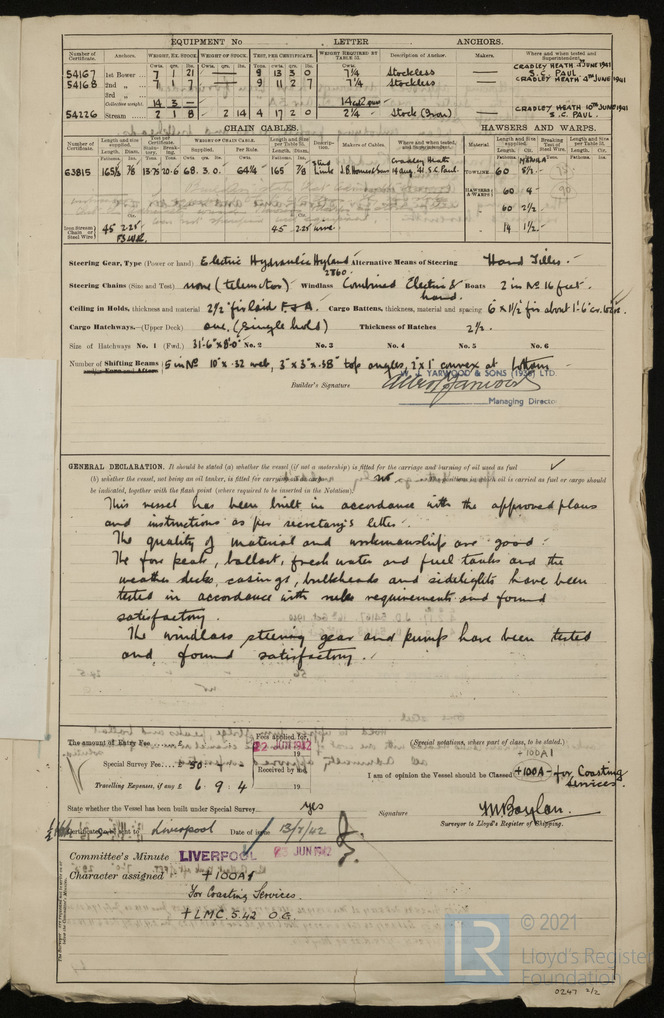 EQUIPMENT No LETTER ANCHORS.
Number of Certificate. Anchors. WEIGHT, EX. STOCK WEIGHT OF STOCK. TEST, PER CERTIFICATE. WEIGHT REQUIRED BY TABLE 53. Description of Anchor. Makers. Where and when tested and Superintendent.
54167 1st Bower 7 1 21 — 9 13 3 0 7¼ Stockless — CRADLEY HEATH 4TH JUNE 1941 S.C. PAUL
54168 2nd „ 7 1 7 — 9 11 2 7 7¼ Stockless — CRADLEY HEATH 4TH JUNE 1941
3rd „
Collective weight. 14 3 — 14
54226 Stream 2 1 8 - 2 14 4 17 2 0 2¼ Stock (Iron) — CRADLEY HEATH 10TH JUNE 1941 S.C. PAUL.
CHAIN CABLES. HAWSERS AND WARPS.
Number of Certificate. Length and size supplied. WEIGHT OF CHAIN CABLE. Supplied. Per Rule. Length and size per Table 53. Makers of Cables. Where and when tested, and Superintendent. Material Length and Size supplied. Breaking Test of Steel Wire. Length and Size per Table 53.
63815 165⅛ 7/8 13·75 20·6 68. 3. 0. 64¼ 165 7/8 Stud Link Cradley Heath 14 aug. '41 S.C. Paul. TOWLINE 60 5½ MANILA
HAWSERS & WARPS 60 4
60 2½
14 1½
Iron Stream Chain or Steel Wire 45 2.25 45 2.25 wire
F.S.W.R.
Steering Gear, Type (Power or hand) Electric Hydraulic Hyland Alternative Means of Steering Hand Tiller
Steering Chains (Size and Test) none (telemotor) Windlass Combined Electric & hand. Boats 2 in No 16 feet.
Ceiling in Holds, thickness and material 2½" fir laid F & A. Cargo Battens, thickness, material and spacing 6 x 1½ fir about 1'-6"
Cargo Hatchways.—(Upper Deck) one, (single hold) Thickness of Hatches 2½.
Size of Hatchways No. 1 (Fwd.) 31'-6" x 18'-0" No. 2 No. 3 No. 4 No. 5 No. 6
Number of Shifting Beams 5 in No 10" x ·32 web, 3" x 3" x ·38" top angles, 2" x 1" convex at bottom
Builder's Signature W. J. YARWOOD & SONS (1938) LTD.
Managing Director
GENERAL DECLARATION. It should be stated (a) whether the vessel (if not a motorship) is fitted for the carriage and burning of oil used as fuel
(b) whether the vessel, not being an oil tanker, is fitted for no in which oil is carried as fuel or cargo should
be indicated, together with the flash point (where required to be inserted in the Notation).
This vessel has been built in accordance with the approved plans
and instructions as per secretary's letter.
The quality of material and workmanship are good.
The fore peak, ballast, fresh water and fuel tanks and the
weather decks, casings, bulkheads and sidelights have been
tested in accordance with rules requirements and found
satisfactory.
The windlass steering gear and pumps have been tested
and found satisfactory.
The amount of Entry Fee £ Fees applied for, 22 JUN 1942
(Special notations, where part of class, to be stated.)
+100A1
Special Survey Fee 50 Received by me, 19
I am of opinion the Vessel should be Classed +100A - for Coasting Services.
Travelling Expenses, if any £ 6 . 9 . 4 19
State whether the Vessel has been built under Special Survey yes
Signature
Surveyor to Lloyd's Register of Shipping.
Certificate to be sent to Liverpool Date of issue 13/7/42
Committee's Minute LIVERPOOL 23 JUN 1942
Character assigned +100A1
For Coasting Services.
+ LMC. 5.42 O.G.
© 2021
LR
Lloyd's Register
Foundation
0247 2/2